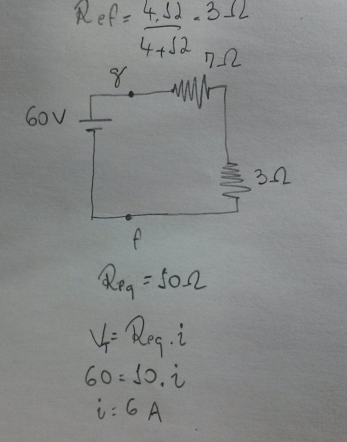 Ref = 4.12 = 3Ω
4+12
g
7Ω
60V
3Ω
f
Req = 10Ω
VT = Req.i
60 = 10.i
i = 6 A